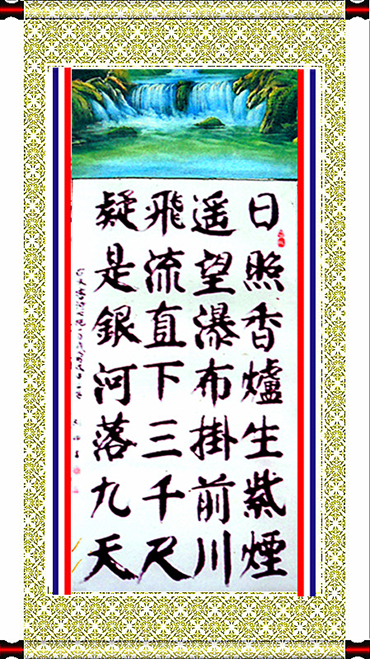 日照香爐生紫煙
遥望瀑布掛前川
飛流直下三千尺
疑是銀河落九天